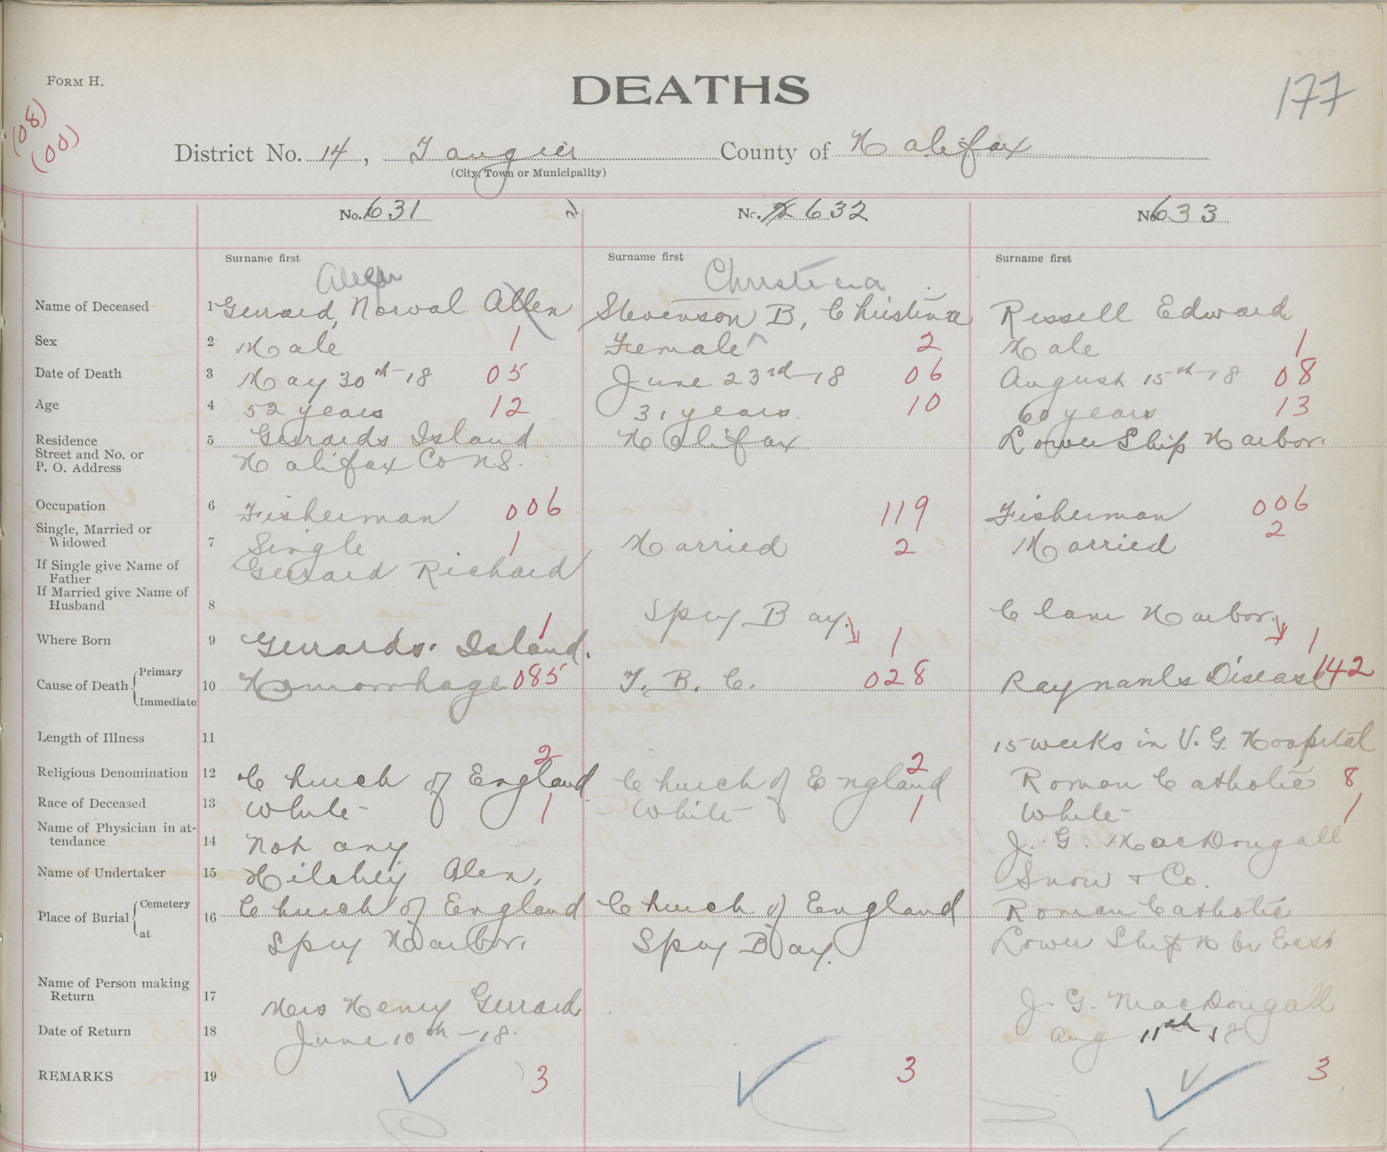 FORM H.
DEATHS
177
(08)
(00)
District No. 14, Tangier County of Halifax
(City, Town or Municipality)
No. 631 No. 632 No. 633
Surname first Surname first Surname first
Christina
Name of Deceased 1 Gerrard, Norval Allen Stevenson B, Christina Russell Edward
Sex 2 Male 1 Female 2 Male 1
Date of Death 3 May 30th-18 05 June 23rd-18 06 August 15th-18 08
Age 4 52 years 12 31 years 10 60 years 13
Residence 5 Gerrards Island Halifax Lower Ship Harbor.
Street and No. or
P. O. Address Halifax Co NS.
Occupation 6 Fisherman 006 119 Fisherman 006
Single, Married or
Widowed 7 Single 1 Married 2 Married 2
If Single give Name of
Father Gerrard Richard
If Married give Name of
Husband 8
Where Born 9 Gerrards. Island. 1 Spry Bay. 1 Clam Harbor. 1
Cause of Death { Primary
Immediate 10 Hemorrhage 085 T. B. C. 028 Raynards Disease 142
Length of Illness 11 15 weeks in V. G. Hospital
Religious Denomination 12 Church of England 2 Church of England 2 Roman Catholic 8
Race of Deceased 13 White 1 White 1 White 1
Name of Physician in at-
tendance 14 Not any J. G. MacDougall
Name of Undertaker 15 Hilchey Alex, Snow & Co.
Place of Burial { Cemetery
at 16 Church of England Church of England Roman Catholic
Spry Harbor. Spry Bay. Lower Ship Hbr East
Name of Person making
Return 17 Mrs Henry Gerrard J. G. MacDougall
Date of Return 18 June 10th-18. Aug 11th 18
REMARKS 19 3 3 3